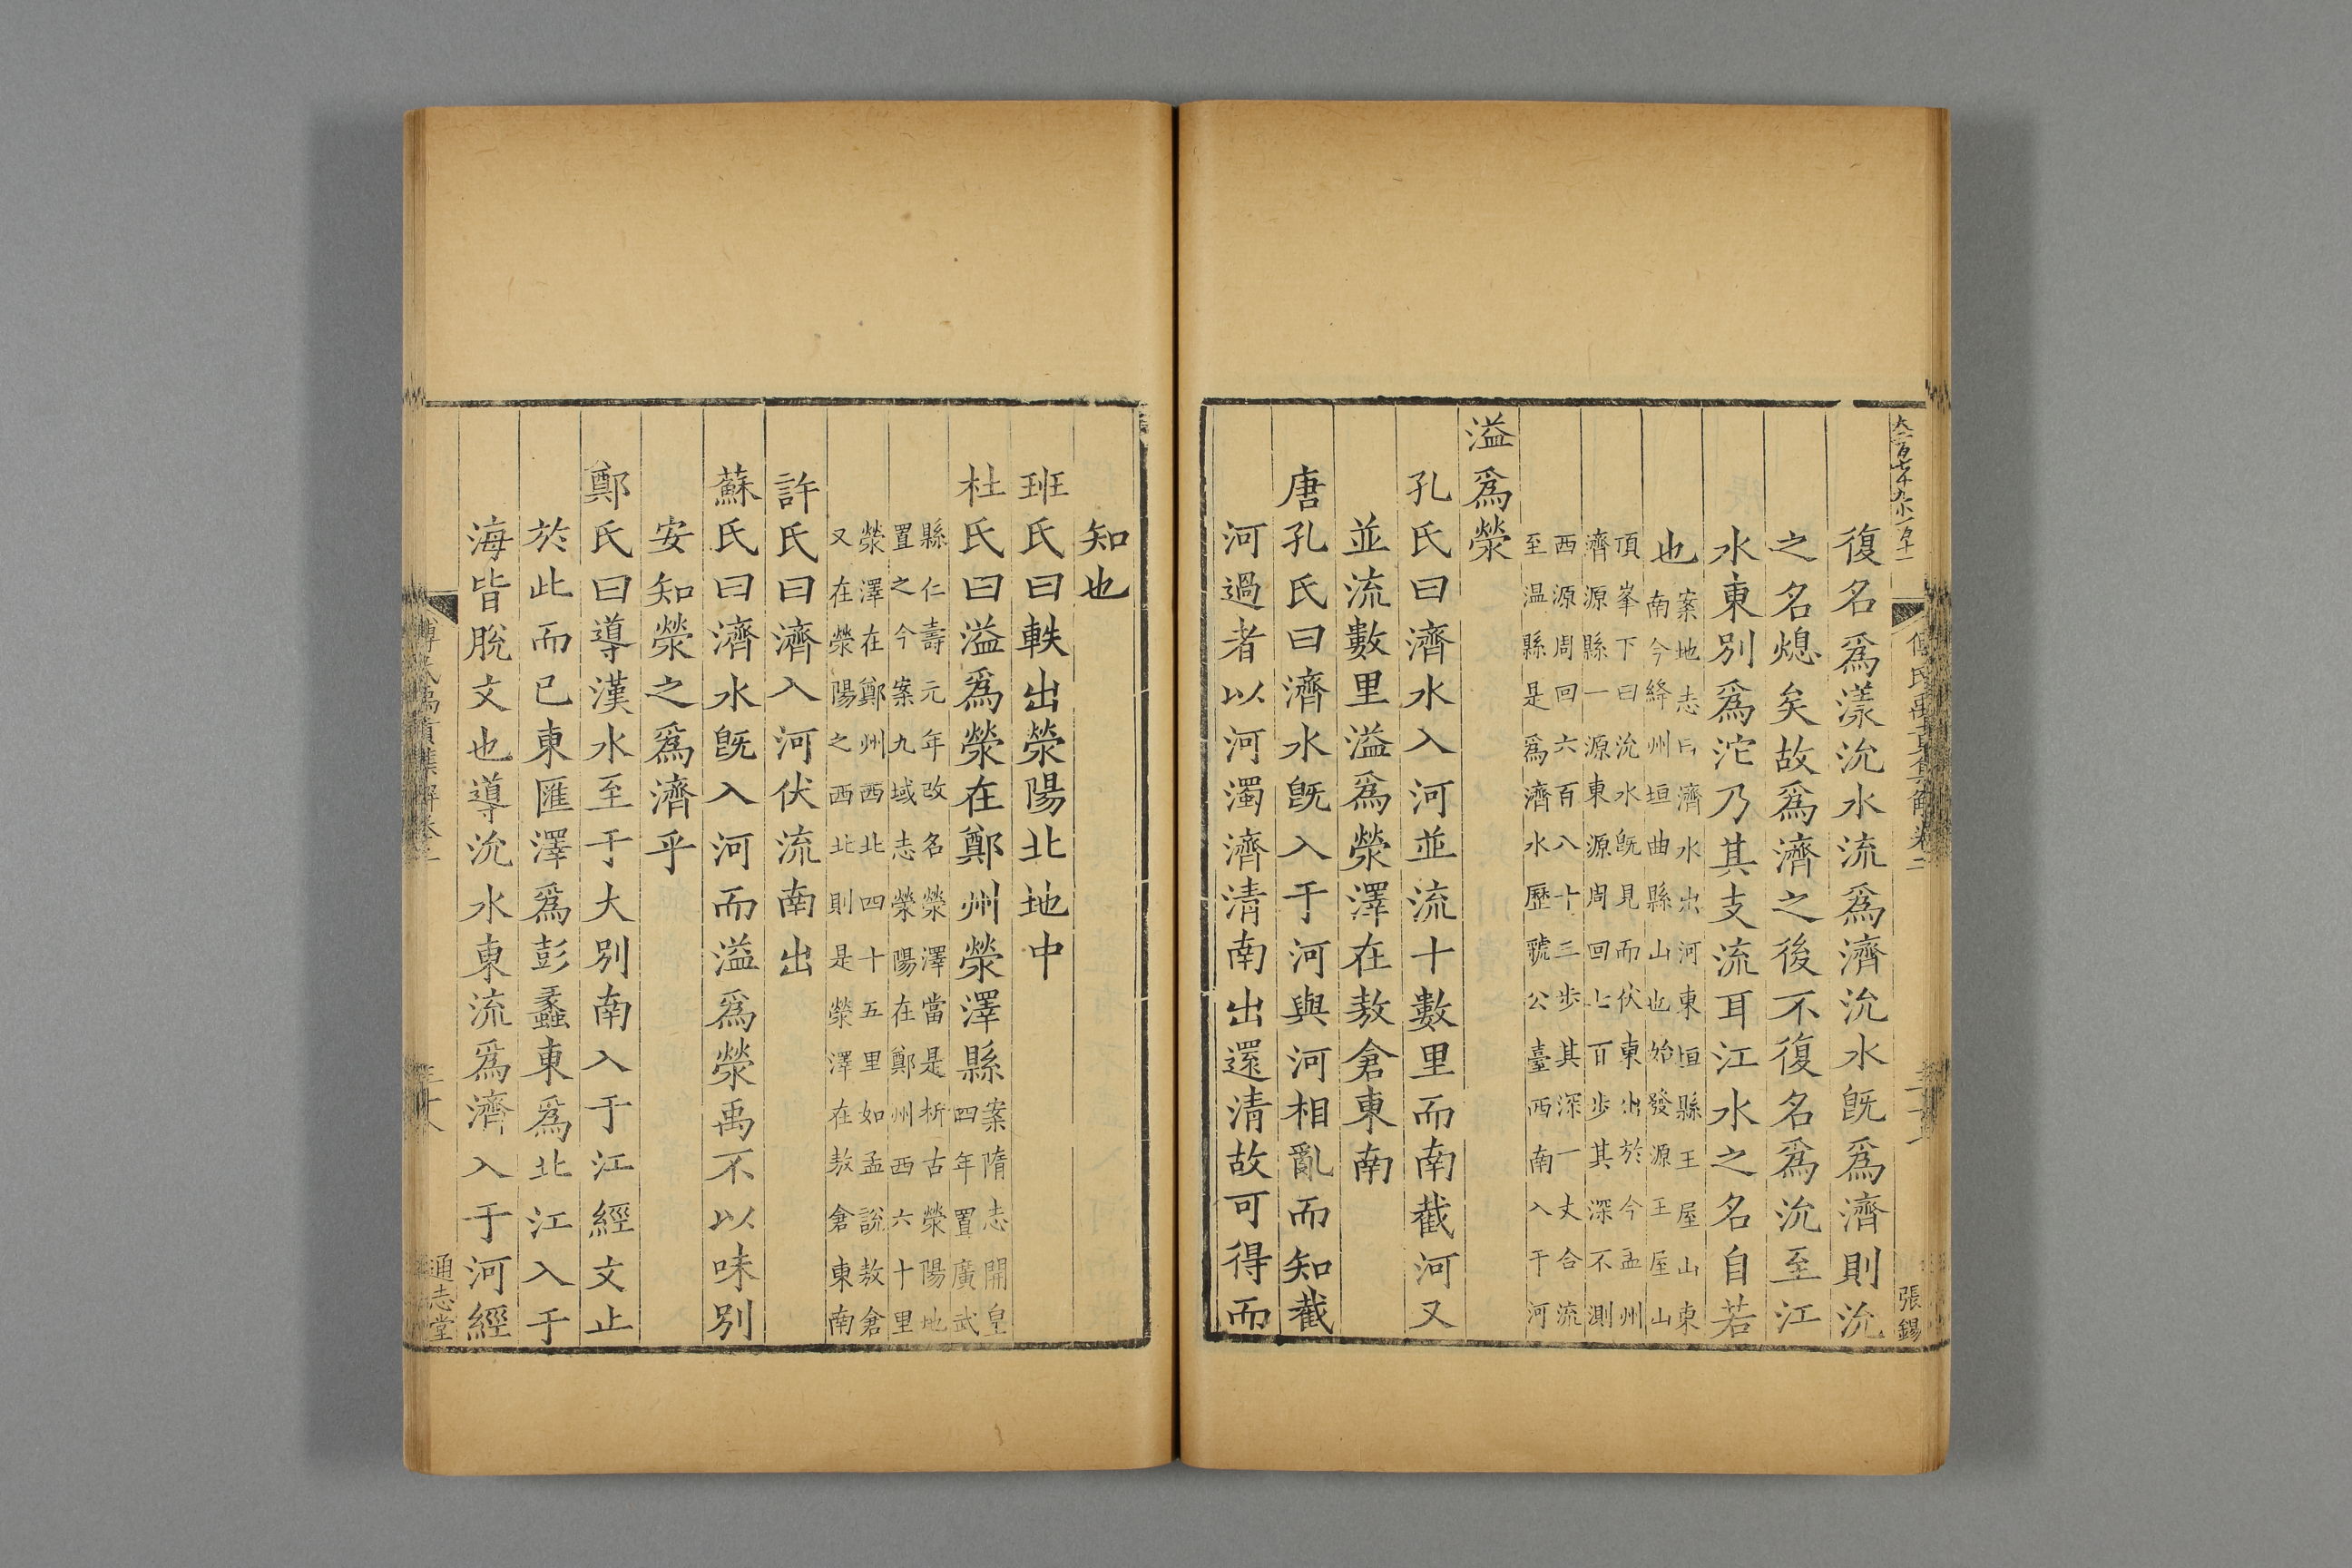 傅氏禹貢集解卷二
張錫
復名爲漾沇水流爲濟沇水旣爲濟則沇
之名熄矣故爲濟之後不復名爲沇至江
水東別爲沱乃其支流耳江水之名自若
也案地志曰濟水出河東垣縣王屋山東
南今絳州垣曲縣山也始發源王屋山
頂峯下曰沇水旣見而伏東出於今孟州
濟源縣一源東源周回七百步其深不測
西源周回六百八十三步其深一丈合流
至温縣是爲濟水歷虢公臺西南入于河
溢爲滎
孔氏曰濟水入河並流十數里而南截河又
並流數里溢爲滎澤在敖倉東南
唐孔氏曰濟水旣入于河與河相亂而知截
河過者以河濁濟清南出還清故可得而
知也
班氏曰軼出滎陽北地中
杜氏曰溢爲滎在鄭州滎澤縣案隋志開皇
四年置廣武
縣仁壽元年改名滎澤當是析古滎陽地
置之今案九域志滎陽在鄭州西六十里
滎澤在鄭州西北四十五里如孟說敖倉
又在滎陽之西北則是滎澤在敖倉東南
許氏曰濟入河伏流南出
蘇氏曰濟水旣入河而溢爲滎禹不以味別
安知滎之爲濟乎
鄭氏曰導漢水至于大別南入于江經文止
於此而已東匯澤爲彭蠡東爲北江入于
海皆脫文也導沇水東流爲濟入于河經
傅氏禹貢集解卷二
通志堂